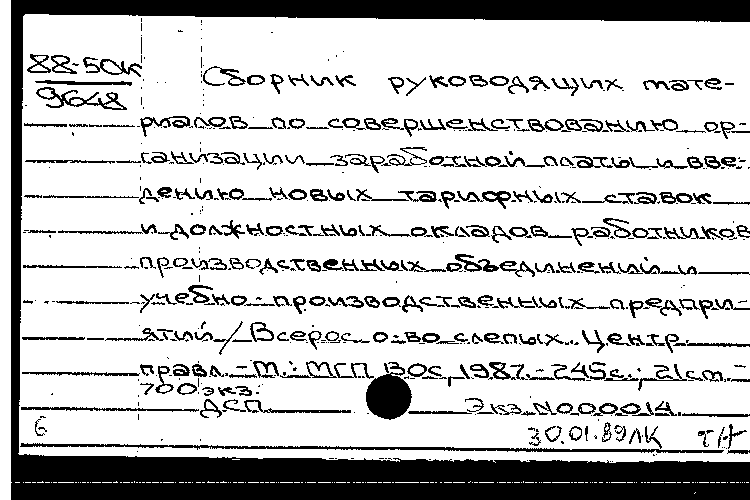 88-50к
9648
Сборник руководящих мате-
риалов по совершенствованию ор-
ганизации заработной платы и вве-
дению новых тарифных ставок
и должностных окладов работников
производственных объединений и
учебно-производственных предпри-
ятий / Всерос. о-во слепых. Центр.
правл. - М.: МГП ВОС, 1987. - 245 с.; 21 см. -
700 экз.
ДСП. Экз. N000014.
6 30.01.89 ЛК